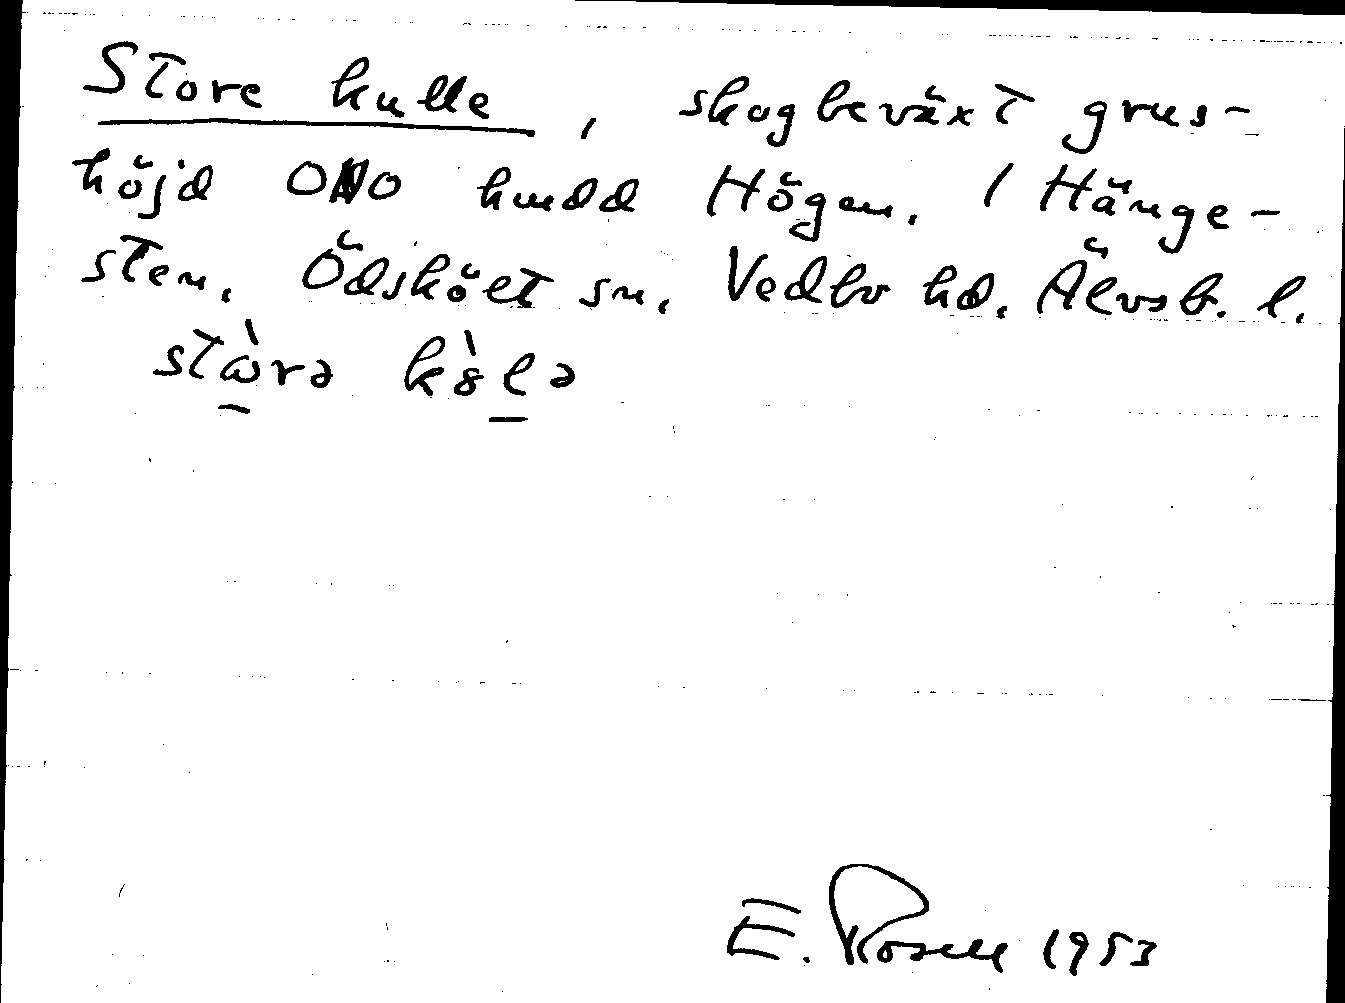 Store kulle, skogbeväxt grus-
höjd ONO hmdd Högen, 1 Hänge-
sten, Ödskölt sn, Vedbo hd, Älvsb. l.
stὼrə kö̀lə
E. Rosell 1953